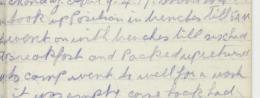 took up position in trenches till 5 AM
went on with trenches till six had
Breakfast and Packed up returned
to camp went to well for a wash
it was empty come back had